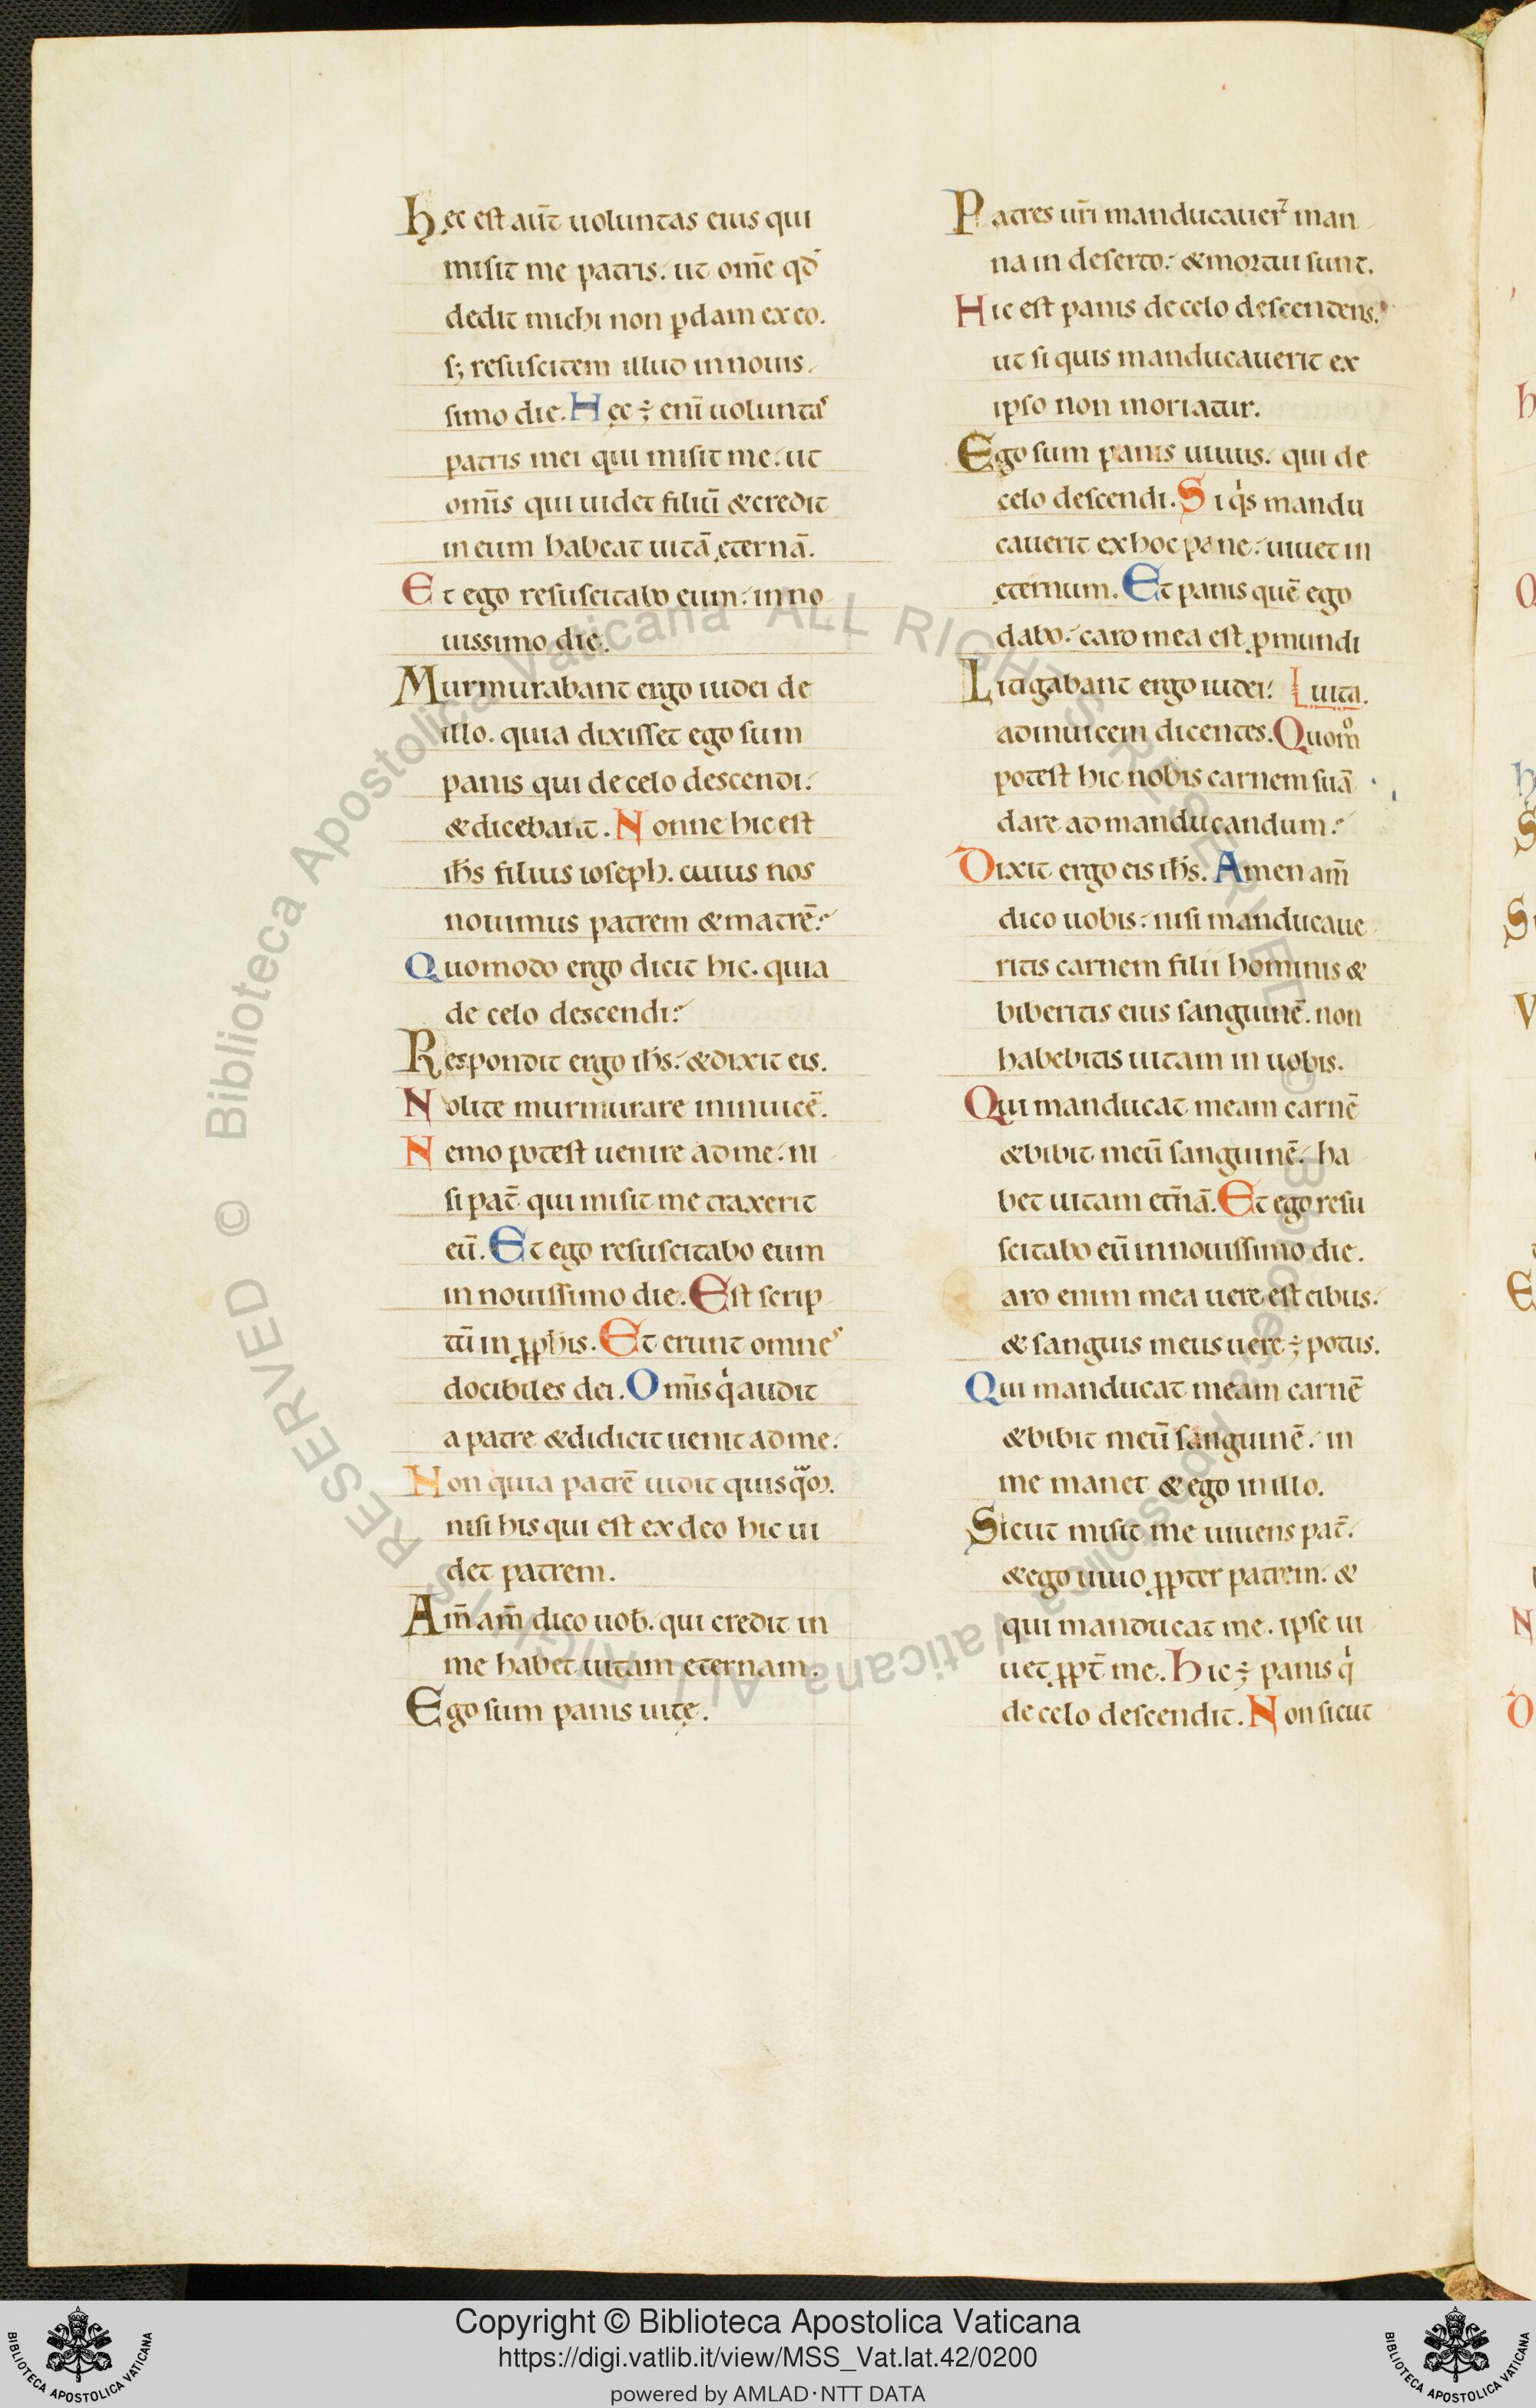 Hęc est aut̄ uoluntas eius qui
misit me patris. ut om̄e qd̄
dedit michi non ꝑdam ex eo.
s; resuscitem illud in nouis
simo die. Hęc ÷ enī uoluntas
patris mei qui misit me. ut
om̄is qui uidet filiū & credit
in eum habeat uitā ęternā.
Et ego resuscitabo eum. in no
uissimo die.
Murmurabant ergo iudei de
illo. quia dixisset ego sum
panis qui de celo descendi.
& dicebant. Nonne hic est
ih̄s filius ioseph. cuius nos
nouimus patrem & matrē?
Quomodo ergo dicit hic. quia
de celo descendi?
Respondit ergo ih̄s. & dixit eis.
Nolite murmurare in inuicē.
Nemo potest uenire ad me. ni
si pat̄ qui misit me traxerit
eū. Et ego resuscitabo eum
in nouissimo die. Est scrip
tū in ꝓph̄is. Et erunt omnes
docibiles dei. Om̄is qͥ audit
a patre & didicit uenit ad me.
Non quia patrē uidit quisqͣꝫ.
nisi his qui est ex deo hic ui
det patrem.
Am̄ am̄ dico uob̄. qui credit in
me habet uitam eternam.
Ego sum panis uitę.
Patres ur̄i manducauer̄ man
na in deserto. & mortui sunt.
Hic est panis de celo descendens.
ut si quis manducauerit ex
ipso non moriatur.
Ego sum panis uiuus. qui de
celo descendi. Si qͥs mandu
cauerit ex hoc pane. uiuet in
ęternum. Et panis quē ego
dabo. caro mea est ꝓ mundi
Litigabant ergo iudei. uita.
adinuicem dicentes. Quom̊
potest hic nobis carnem suā
dare ad manducandum?
Dixit ergo eis ih̄s. Amen am̄
dico uobis. nisi manducaue
ritis carnem filii hominis &
biberitis eius sanguinē. non
habebitis uitam in uobis.
Qui manducat meam carnē
& bibit meū sanguinē. ha
bet uitam et̄nā. Et ego resu
scitabo eū in nouissimo die.
aro enim mea uere est cibus.
& sanguis meus uere ÷ potus.
Qui manducat meam carnē
& bibit meū sanguinē. in
me manet & ego in illo.
Sicut misit me uiuens pat̄.
& ego uiuo ꝓpter patrem. &
qui manducat me. ipse ui
uet ꝓpt̄ me. Hic ÷ panis qͥ
de celo descendit. Non sicut
© Biblioteca Apostolica Vaticana ALL RIGHTS RESERVED © Biblioteca Apostolica Vaticana ALL RIGHTS RESERVED
Copyright © Biblioteca Apostolica Vaticana
https://digi.vatlib.it/view/MSS_Vat.lat.42/0200
powered by AMLAD·NTT DATA
BIBLIOTECA APOSTOLICA VATICANA
BIBLIOTECA APOSTOLICA VATICANA